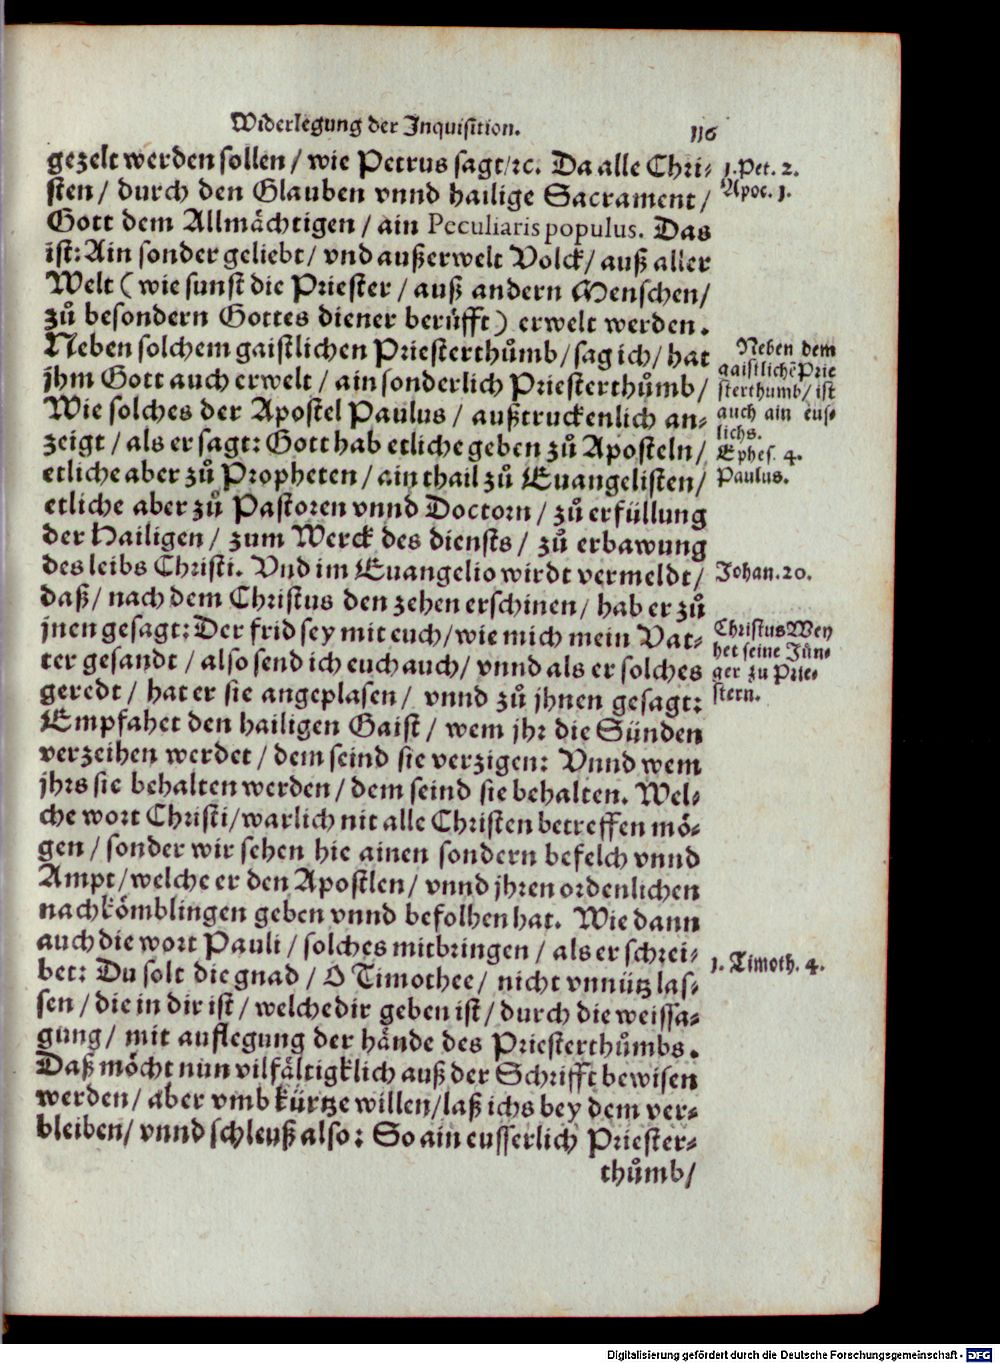 Widerlegung der Inquisition. 116
gezelt werden sollen / wie Petrus sagt / ꝛc. Da alle Chri⸗
sten / durch den Glauben vnnd hailige Sacrament /
Gott dem Allmächtigen / ain Peculiaris populus. Das
ist: Ain sonder geliebt / vnd außerwelt Volck / auß aller
Welt ( wie sunst die Priester / auß andern Menschen /
zů besondern Gottes diener berüfft ) erwelt werden.
Neben solchem gaistlichen Priesterthůmb / sag ich / hat
jhm Gott auch erwelt / ain sonderlich Priesterthůmb /
Wie solches der Apostel Paulus / außtruckenlich an⸗
zeigt / als er sagt: Gott hab etliche geben zů Aposteln /
etliche aber zů Propheten / ain thail zů Euangelisten /
etliche aber zů Pastoren vnnd Doctorn / zů erfüllung
der Hailigen / zum Werck des diensts / zů erbawung
des leibs Christi. Vnd im Euangelio wirdt vermeldt /
daß / nach dem Christus den zehen erschinen / hab er zů
jnen gesagt: Der frid sey mit euch / wie mich mein Vat⸗
ter gesandt / also send ich euch auch / vnnd als er solches
geredt / hat er sie angeplasen / vnnd zů jhnen gesagt:
Empfahet den hailigen Gaist / wem jhr die Sünden
verzeihen werdet / dem seind sie verzigen: Vnnd wem
jhrs sie behalten werden / dem seind sie behalten. Wel⸗
che wort Christi / warlich nit alle Christen betreffen mö⸗
gen / sonder wir sehen hie ainen sondern befelch vnnd
Ampt / welche er den Apostlen / vnnd jhren ordenlichen
nachkömblingen geben vnnd befolhen hat. Wie dann
auch die wort Pauli / solches mitbringen / als er schrei⸗
bet: Du solt die gnad / O Timothee / nicht vnnütz las⸗
sen / die in dir ist / welche dir geben ist / durch die weissa⸗
gung / mit auflegung der hände des Priesterthůmbs.
Daß möcht nun vilfältigklich auß der Schrifft bewisen
werden / aber vmb kürtze willen / laß ichs bey dem ver⸗
bleiben / vnnd schleuß also: So ain eusserlich Priester⸗
thůmb /
1. Pet. 2.
Apoc. 1.
Neben dem
gaistlichē Prie
sterthumb / ist
auch ain eus⸗
lichs.
Ephes. 4.
Paulus.
Johan. 20.
Christus Wey
het seine Jün⸗
ger zu Prie⸗
stern.
1. Timoth. 4.
Digitalisierung gefördert durch die Deutsche Forschungsgemeinschaft - DFG